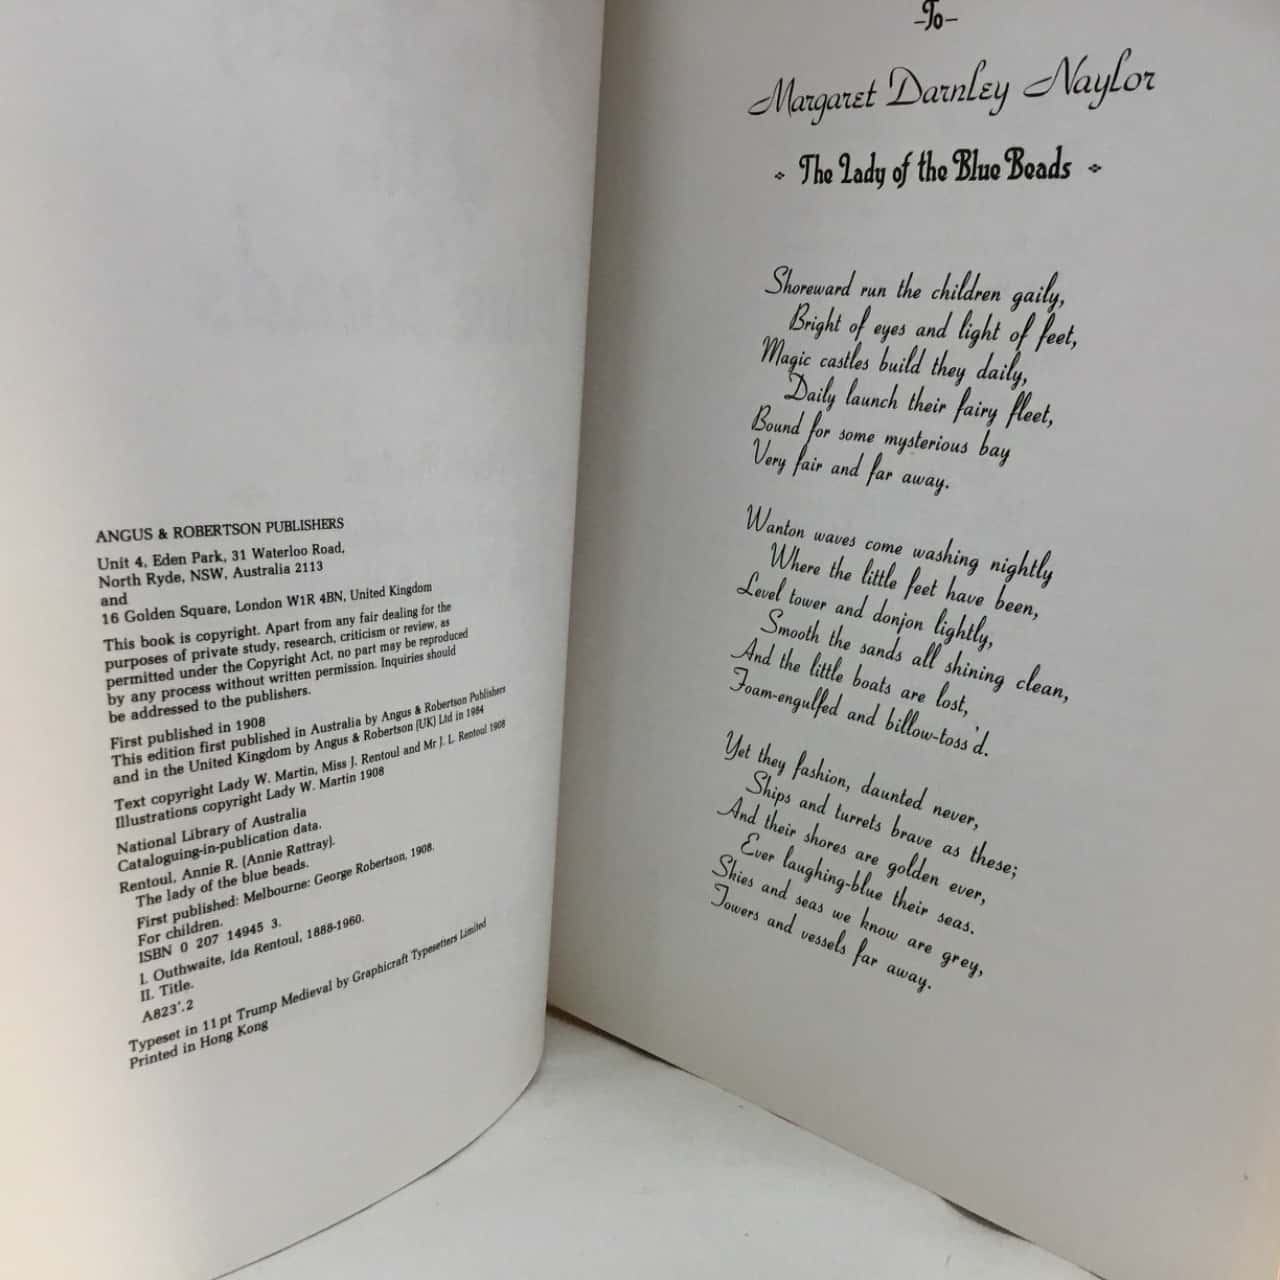 ANGUS & ROBERTSON PUBLISHERS
Unit 4, Eden Park, 31 Waterloo Road,
North Ryde, NSW, Australia 2113
and
16 Golden Square, London W1R 4BN, United Kingdom
This book is copyright. Apart from any fair dealing for the
purposes of private study, research, criticism or review, as
permitted under the Copyright Act, no part may be reproduced
by any process without written permission. Inquiries should
be addressed to the publishers.
First published in 1908
This edition first published in Australia by Angus & Robertson Publishers
and in the United Kingdom by Angus & Robertson (UK) Ltd in 1984
Text copyright Lady W. Martin, Miss J. Rentoul and Mr J. L. Rentoul 1908
Illustrations copyright Lady W. Martin 1908
National Library of Australia
Cataloguing-in-publication data.
Rentoul, Annie R. (Annie Rattray).
The lady of the blue beads.
First published: Melbourne: George Robertson, 1908.
For children.
ISBN 0 207 14945 3.
I. Outhwaite, Ida Rentoul, 1888-1960.
II. Title.
A823'.2
Typeset in 11pt Trump Medieval by Graphicraft Typesetters Limited
Printed in Hong Kong
–To–
Margaret Darnley Naylor
The Lady of the Blue Beads
Shoreward run the children gaily,
Bright of eyes and light of feet,
Magic castles build they daily,
Daily launch their fairy fleet,
Bound for some mysterious bay
Very fair and far away.
Wanton waves come washing nightly
Where the little feet have been,
Level tower and donjon lightly,
Smooth the sands all shining clean,
And the little boats are lost,
Foam-engulfed and billow-toss'd.
Yet they fashion, daunted never,
Ships and turrets brave as these;
And their shores are golden ever,
Ever laughing-blue their seas.
Skies and seas we know are grey,
Towers and vessels far away.